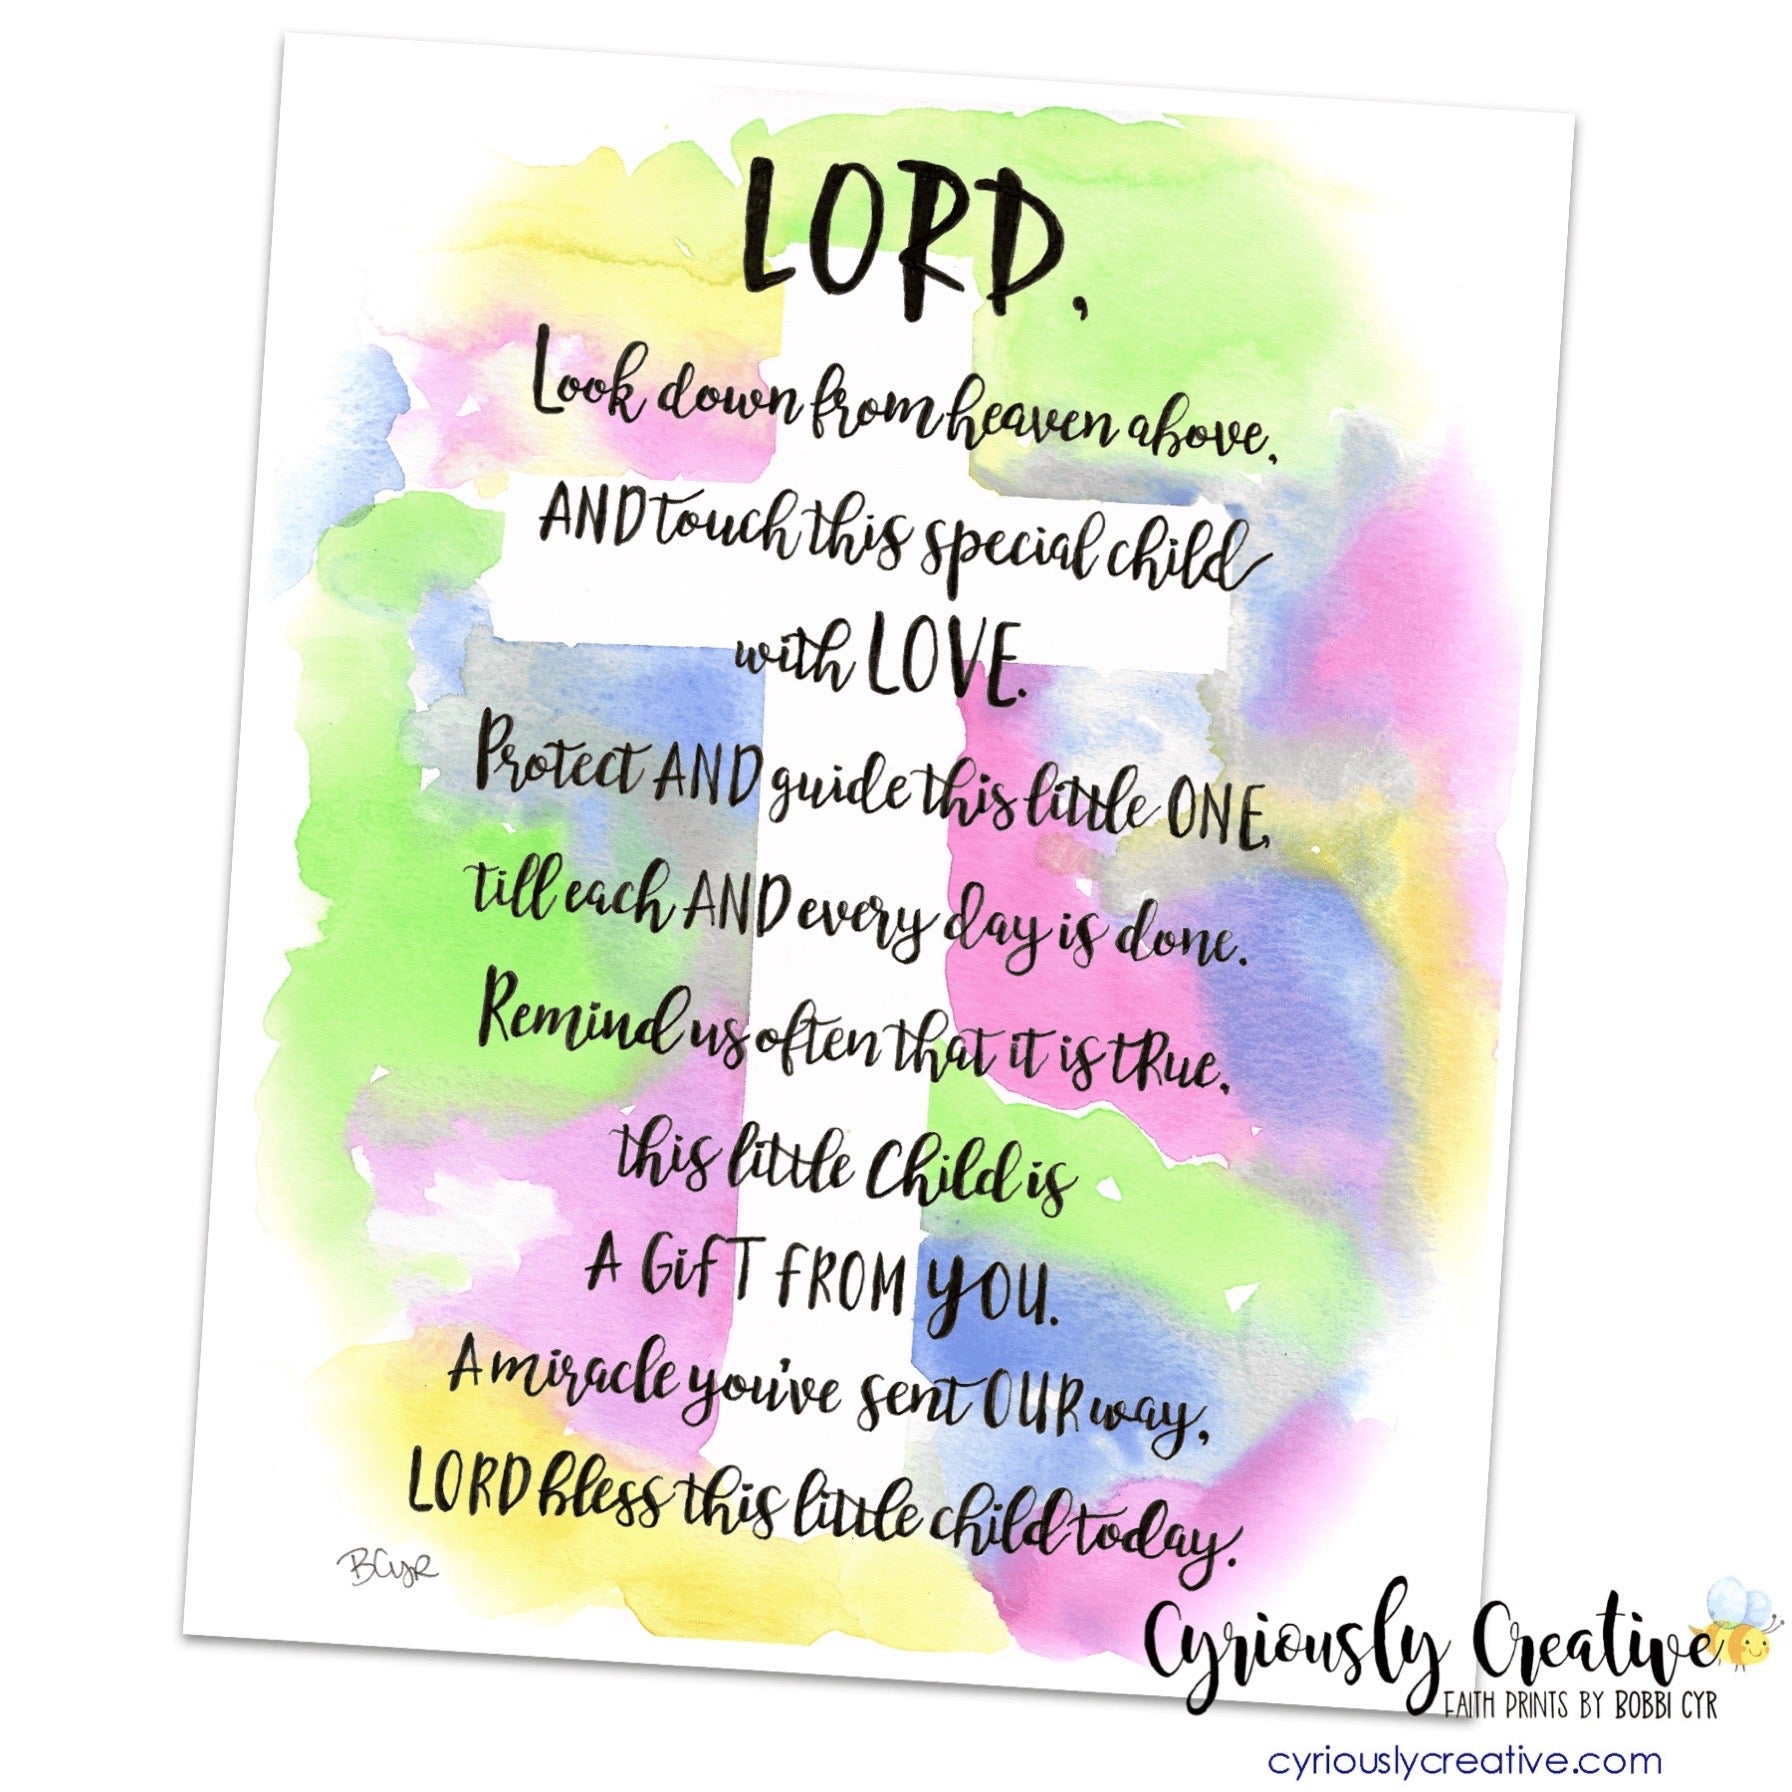 LORD,
Look down from heaven above,
AND touch this special child
with LOVE.
Protect AND guide this little ONE,
till each AND every day is done.
Remind us often that it is tRue,
this little Child is
A GifT FROM YOU.
A miracle you've sent OUR way,
LORD bless this little child today.
BCyR
Cyriously Creative
FAITH PRINTS BY BOBBI CYR
cyriouslycreative.com